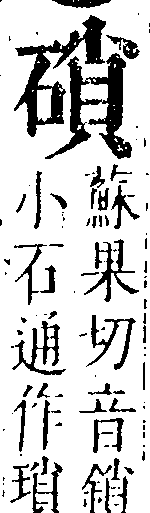 䃘
蘇果切音鎖
小石通作瑣